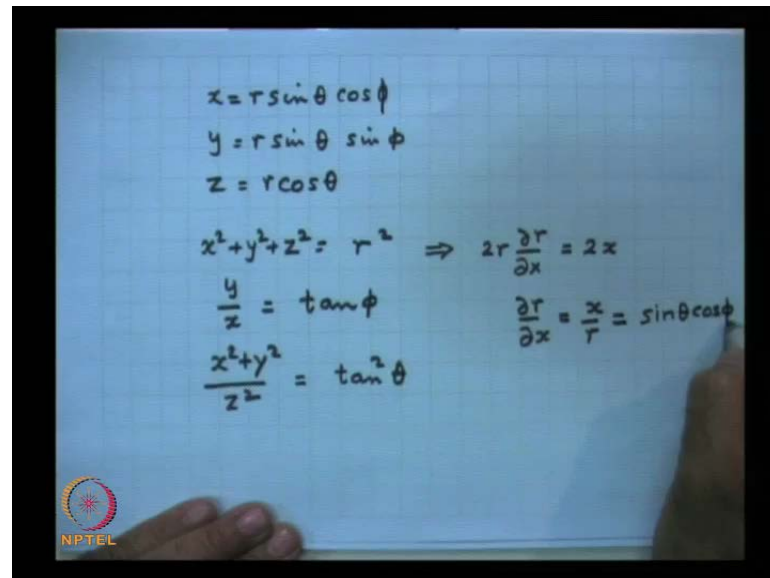 x = r sin θ cos ϕ
y = r sin θ sin ϕ
z = r cos θ
x² + y² + z² = r² ⇒ 2r ∂r/∂x = 2x
y/x = tan ϕ
∂r/∂x = x/r = sin θ cos ϕ
(x² + y²)/z² = tan² θ
NPTEL